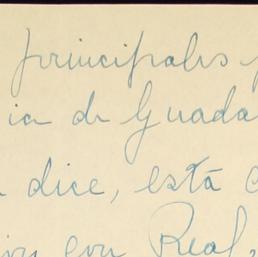 principales
ia de Guada
dice, está
con Real,